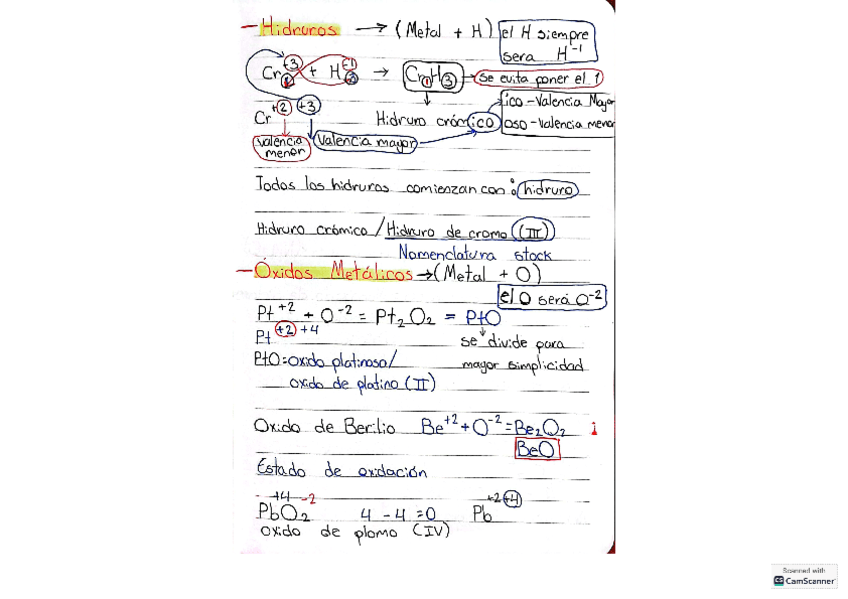 - Hidruros → (Metal + H) el H siempre
sera H⁻¹
Cr⁺³ + H⁻¹ → Cr₁H₃ → Se evita poner el 1
Cr +2 +3 Hidruro crómico ico - Valencia Mayor
oso - Valencia menor
valencia menor Valencia mayor
Todos los hidruros comienzan con: hidruro
Hidruro crómico / Hidruro de cromo (III)
Nomenclatura stock
- Óxidos Metálicos → (Metal + O)
el O será O⁻²
Pt⁺² + O⁻² = Pt₂O₂ = PtO
Pt +2 +4 se divide para
PtO = oxido platinoso / mayor simplicidad
oxido de platino (II)
Oxido de Berilio Be⁺² + O⁻² = Be₂O₂
BeO
Estado de oxidación
+4 -2 +2 +4
PbO₂ 4 - 4 = 0 Pb
oxido de plomo (IV)
Scanned with
CS CamScanner